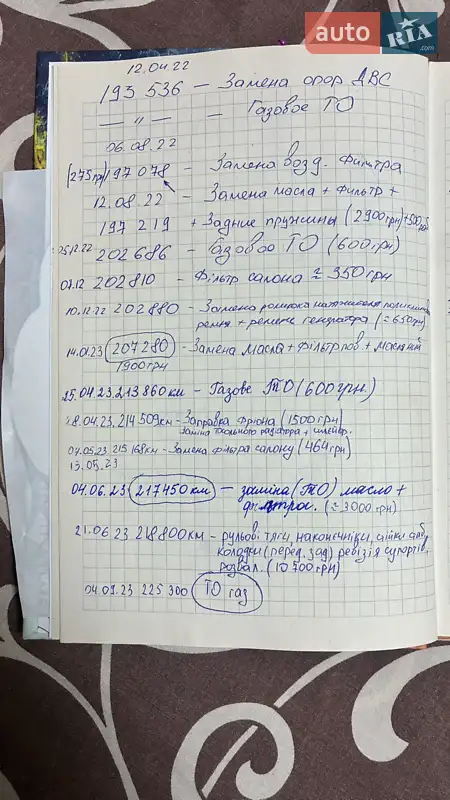 auto RIA.com
12.04.22
193 536 – Замена опор ДВС
— " — – Газовое ТО
06.08.22
(275грн) 197 078 – Замена возд. Фильтра
12.08.22 – Замена масла + Фильтр +
197 219 + Задние пружины (2900грн)
25.12.22 202686 – Газовое ТО (600грн)
07.12 202810 – Фільтр салона ≈ 350грн
10.12.22 202880 – Замена ролика натяжителя
ремня + ремень генератора (≈650грн)
14.01.23 207280 – Замена масла + Фільтр пов. + масляний
1900грн
25.04.23 213 860 км – Газове ТО (600грн.)
28.04.23. 214 509км – Заправка фріона (1500грн)
заміна радіатора +
07.05.23 215 168км – Замена фільтра салону (464грн)
13.05.23
04.06.23 217450 км – заміна (ТО) масло +
фільтров. (≈ 3000грн)
21.06 23 218800км – рульові тяги, наконечники,
колодки (перед. зад) ревізія супортів,
розвал. (10 700грн)
04.09.23 225 300 ТО газ